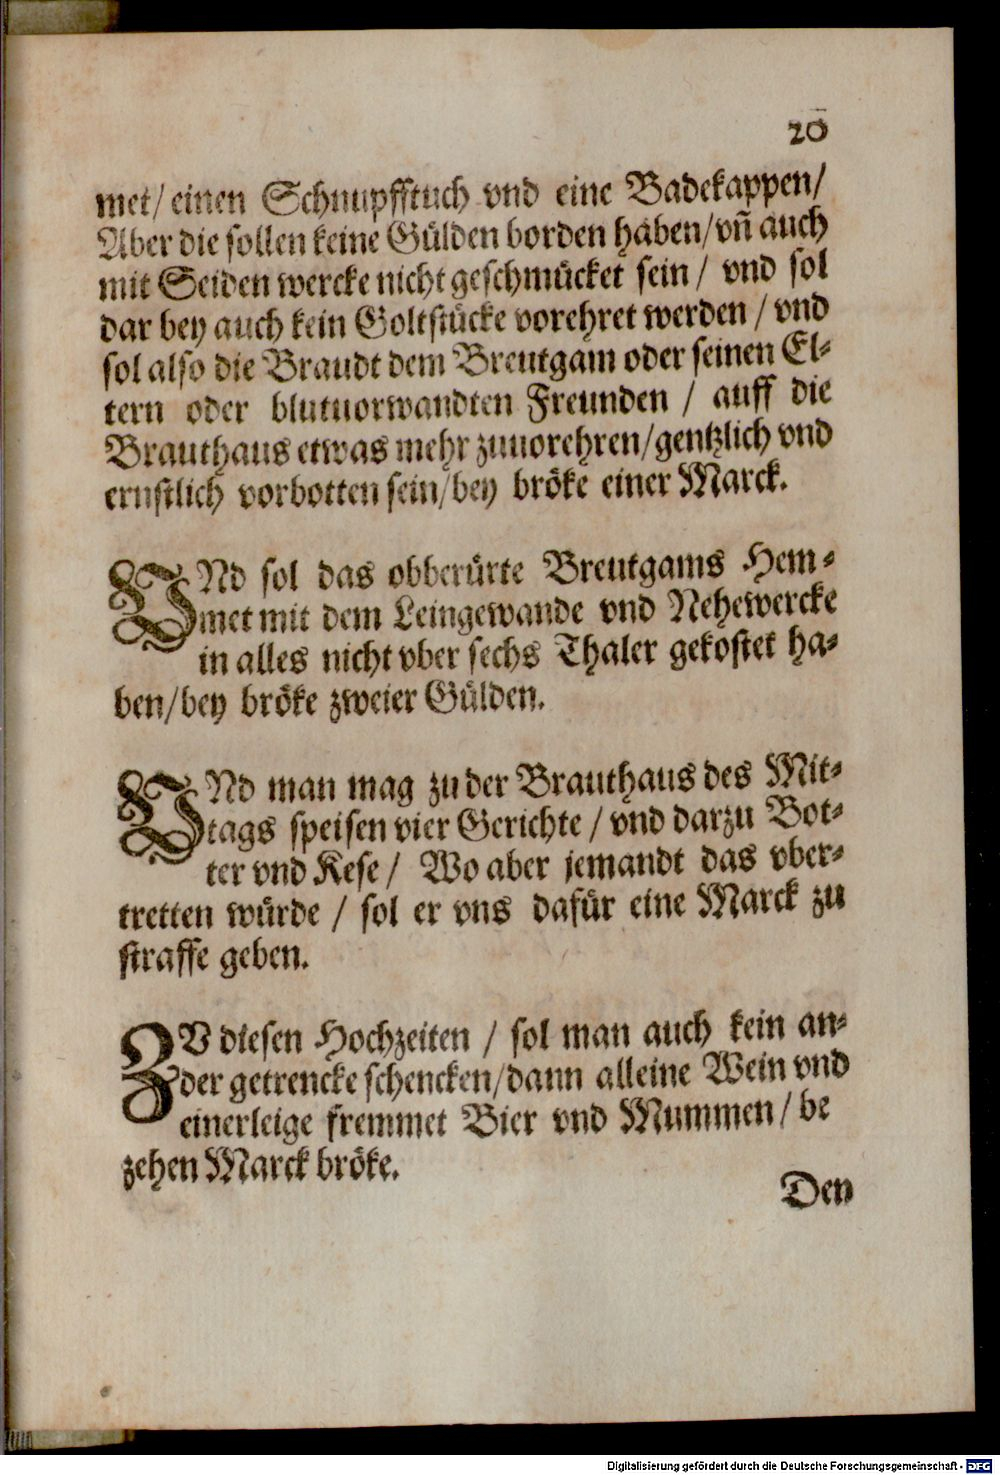 20
met/ einen Schnupfftuch vnd eine Badekappen/
Aber die sollen keine Gülden borden haben/ vñ auch
mit Seiden wercke nicht geschmücket sein / vnd sol
dar bey auch kein Goltstücke vorehret werden / vnd
sol also die Braudt dem Breutgam oder seinen El-
tern oder blutuorwandten Freunden / auff die
Brauthaus etwas mehr zuuorehren/ gentzlich vnd
ernstlich vorbotten sein/ bey bröke einer Marck.
VNd sol das obberürte Breutgams Hem-
met mit dem Leingewande vnd Nehewercke
in alles nicht vber sechs Thaler gekostet ha-
ben/ bey bröke zweier Gülden.
VNd man mag zu der Brauthaus des Mit-
tags speisen vier Gerichte / vnd darzu Bot-
ter vnd Kese / Wo aber jemandt das vber-
tretten würde / sol er vns dafür eine Marck zu
straffe geben.
ZV diesen Hochzeiten / sol man auch kein an-
der getrencke schencken/ dann alleine Wein vnd
einerleige fremmet Bier vnd Mummen / be
zehen Marck bröke.
Den
Digitalisierung gefördert durch die Deutsche Forschungsgemeinschaft - DFG